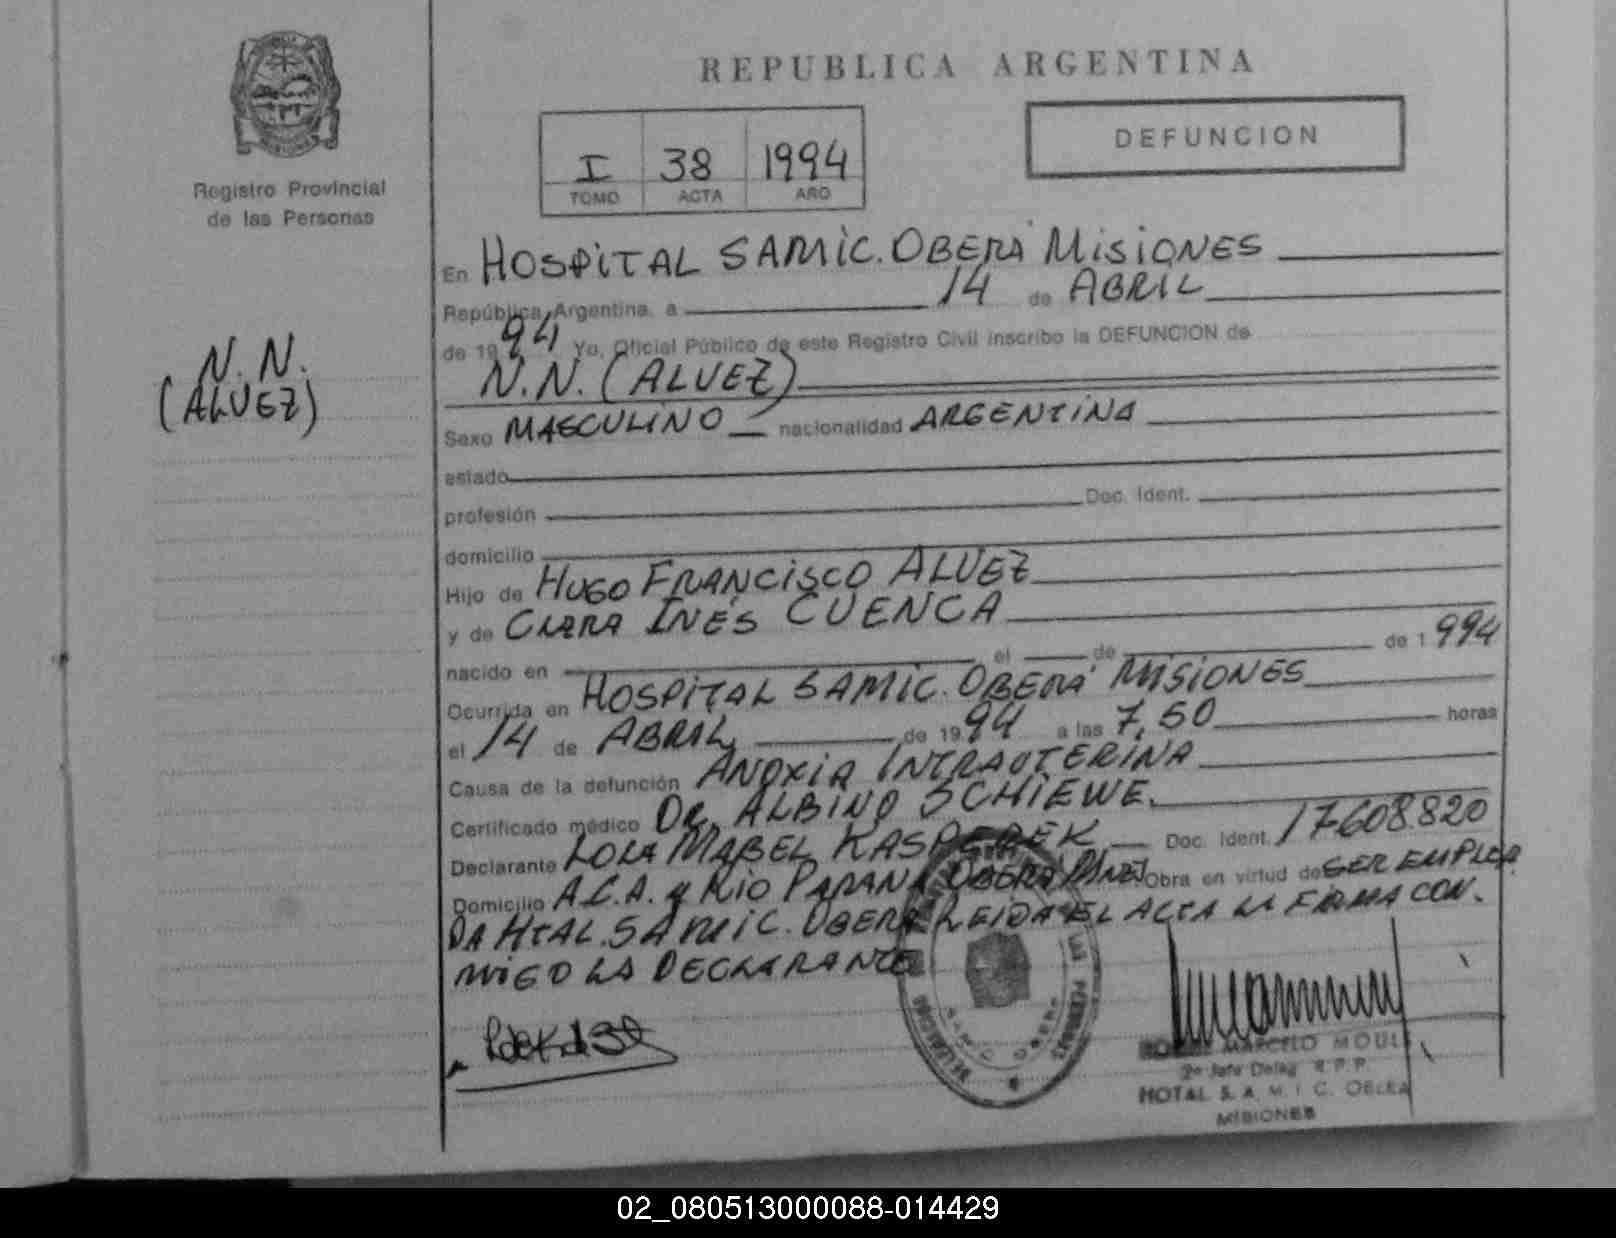 REPUBLICA ARGENTINA
DEFUNCION
I 38 1994
TOMO ACTA AÑO
MISIONES
Registro Provincial
de las Personas
N. N.
(ALVEZ)
En HOSPITAL SAMIC. OBERÁ MISIONES
República Argentina, a 14 de ABRIL
de 1994 Yo, Oficial Público de este Registro Civil inscribo la DEFUNCION de
N.N. (ALVEZ)
Sexo MASCULINO nacionalidad ARGENTINA
estado
profesión Doc. Ident.
domicilio
Hijo de HUGO FRANCISCO ALVEZ
y de CLARA INÉS CUENCA
nacido en el de de 1994
Ocurrida en HOSPITAL SAMIC. OBERÁ MISIONES
el 14 de ABRIL de 1994 a las 7,50 horas
Causa de la defunción ANOXIA INTRAUTERINA
Certificado médico Dr. ALBINO SCHIEWE.
Declarante LOLA MABEL KASPEREK Doc. Ident. 17608820
Domicilio A.C.A. y RIO PARANA OBERA Mnes Obra en virtud de SER EMPLEA
DA HTAL. SAMIC. OBERA LEIDA EL ACTA LA FIRMA CON.
MIGO LA DECLARANTE
SAMIC OBERA
MARCELO MOUL
2º Jefe Deleg. R.P.P.
HOTAL S. A. M. I. C. OBERA
MISIONES
02_080513000088-014429